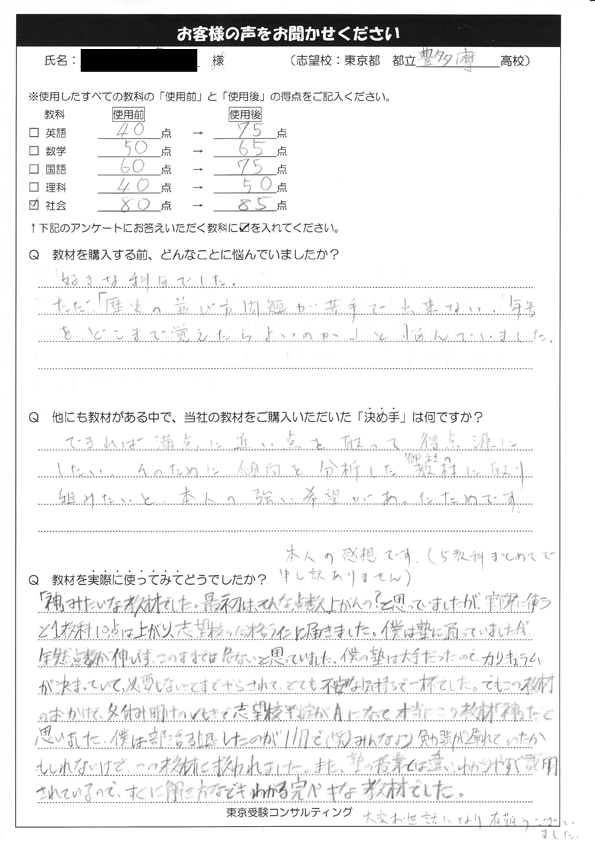 お客様の声をお聞かせください
氏名: 様 (志望校:東京都 都立 豊多摩 高校)
※使用したすべての教科の「使用前」と「使用後」の得点をご記入ください。
教科 使用前 使用後
□ 英語 40 点 → 75 点
□ 数学 50 点 → 65 点
□ 国語 60 点 → 75 点
□ 理科 40 点 → 50 点
☑ 社会 80 点 → 85 点
↑下記のアンケートにお答えいただく教科に☑を入れてください。
Q 教材を購入する前、どんなことに悩んでいましたか?
好きな科目でした。
ただ、「歴史の並び方問題が苦手で出来ない、年号
をどこまで覚えたらよいのか」と悩んでいました。
Q 他にも教材がある中で、当社の教材をご購入いただいた「決め手」は何ですか?
できれば満点に近い点を取って得点源に
したい、そのために傾向を分析した御社の教材に取り
組みたいと、本人の強い希望があったためです。
本人の感想です。(5教科まとめてで
申し訳ありません)
Q 教材を実際に使ってみてどうでしたか?
「神みたいな教材でした。最初はそんな点数上がんの?と思っていましたが、実際に使う
と1教科10点は上がり、志望校のボーダーラインに届きました。僕は塾に通っていましたが、
全然点数が伸びず、このままでは危ないと思っていました。僕の塾は大手だったので、カリキュラム
が決まっていて、必要もないとこまでやらされて、とても不安な気持ちで一杯でした。でもこの教材
のおかげで、冬休み明けのVもぎで志望校判定がAになって、本当にこの教材神だと
思いました。僕は部活を引退したのが11月で(笑)みんなより勉強が遅れていたか
もしれないけど、この教材に救われました。また、塾の授業とは違い、わかりやすく説明
されているので、すぐに解き方などもわかる完ペキな教材でした。
大変お世話になり有難うござい
ました。
東京受験コンサルティング